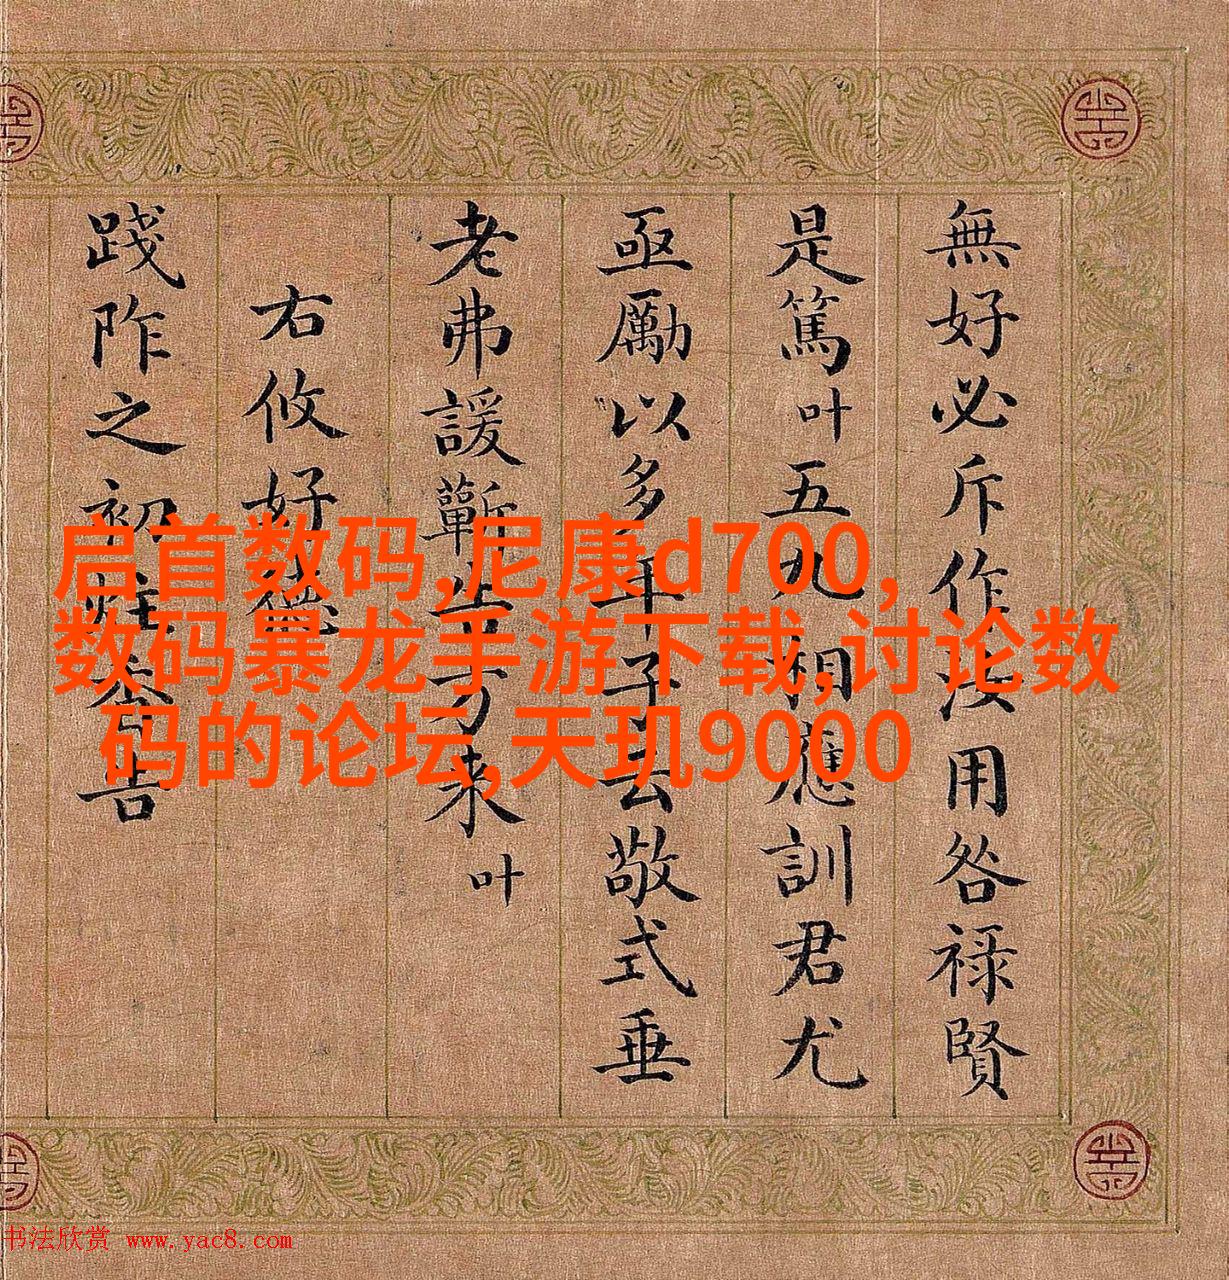 無好必斥作汝用咎禄賢
是篤叶五九相應訓君尤
亟勵以多年子敬式垂
老弗諼蘄告方来叶
右攸好德
践阼之初炷香告
启首数码,尼康d700,
数码暴龙手游下载,讨论数
码的论坛,天玑9000
书法欣赏 www.yac8.com